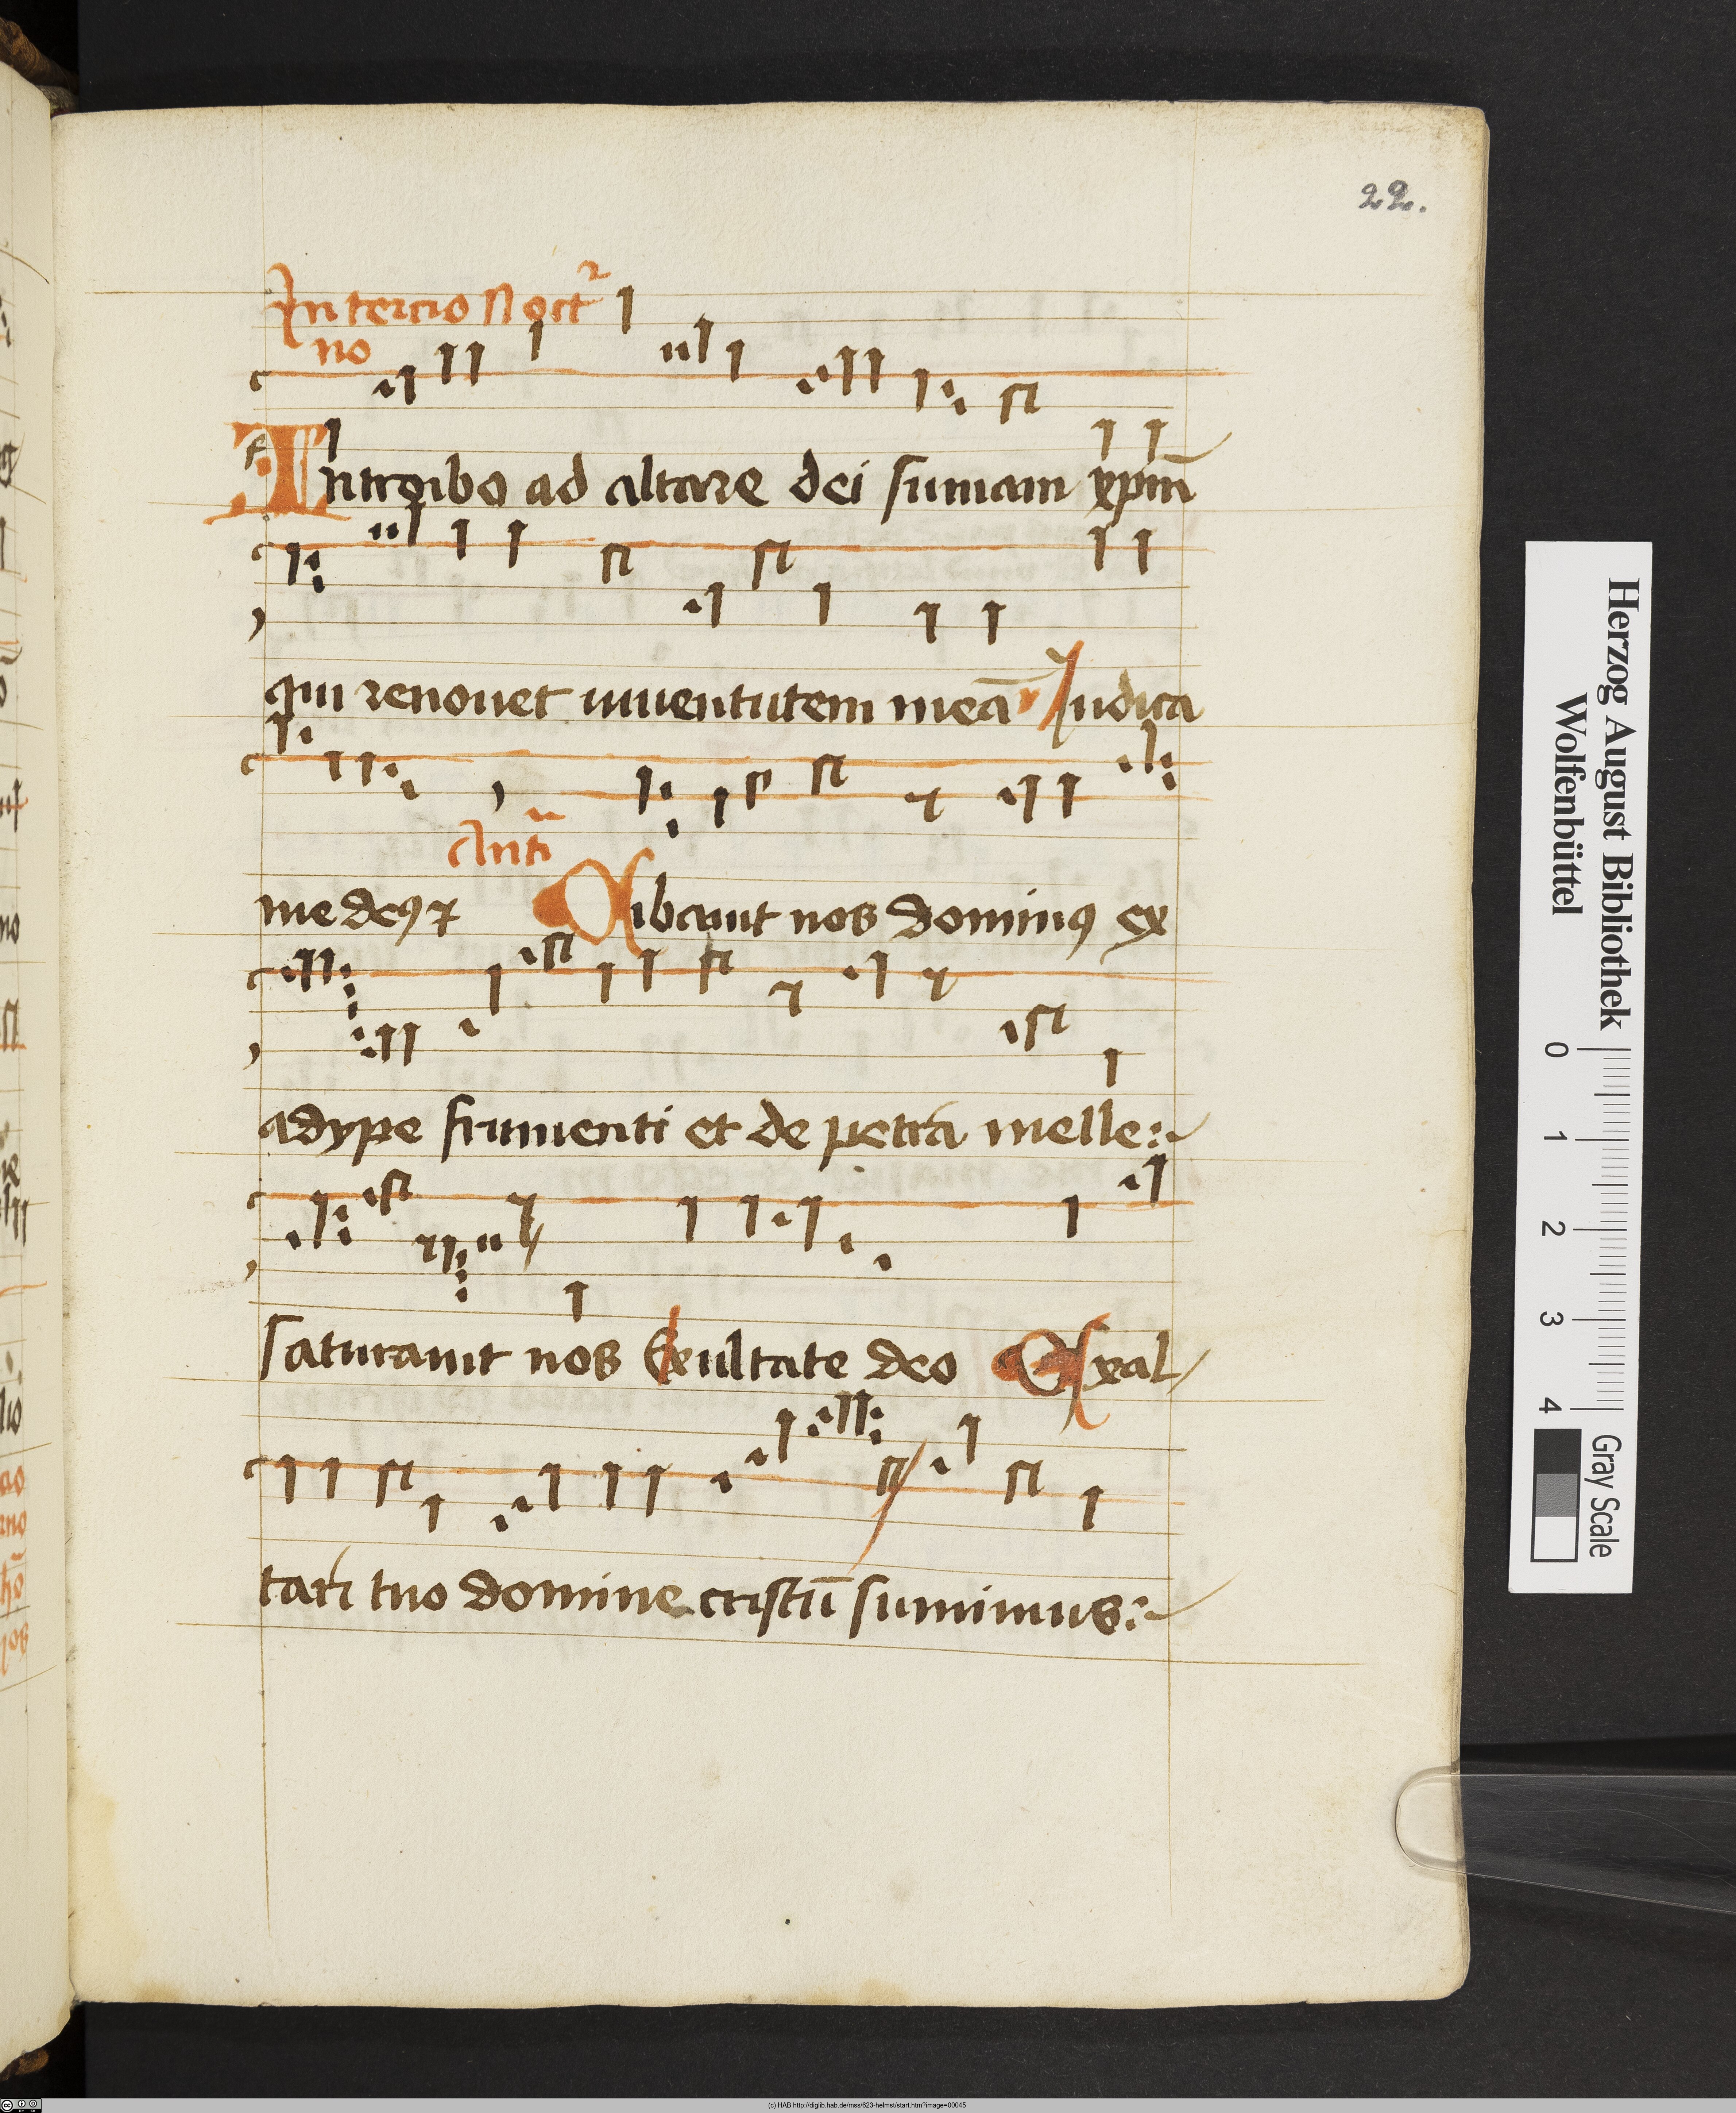 22.
In tercio Noct
no
Introibo ad altare dei sumam xpm̄
qui renouet iuuentutem meā Iudica
Antī
me deꝯ Cibauit nos dominꝯ ex
adype frumenti et de petra melle
saturauit nos Exultate deo Exal
tari tuo domine cristū sumimus
Herzog August Bibliothek
Wolfenbüttel
0 1 2 3 4
Gray Scale
(c) HAB http://diglib.hab.de/mss/623-helmst/start.htm?image=00045